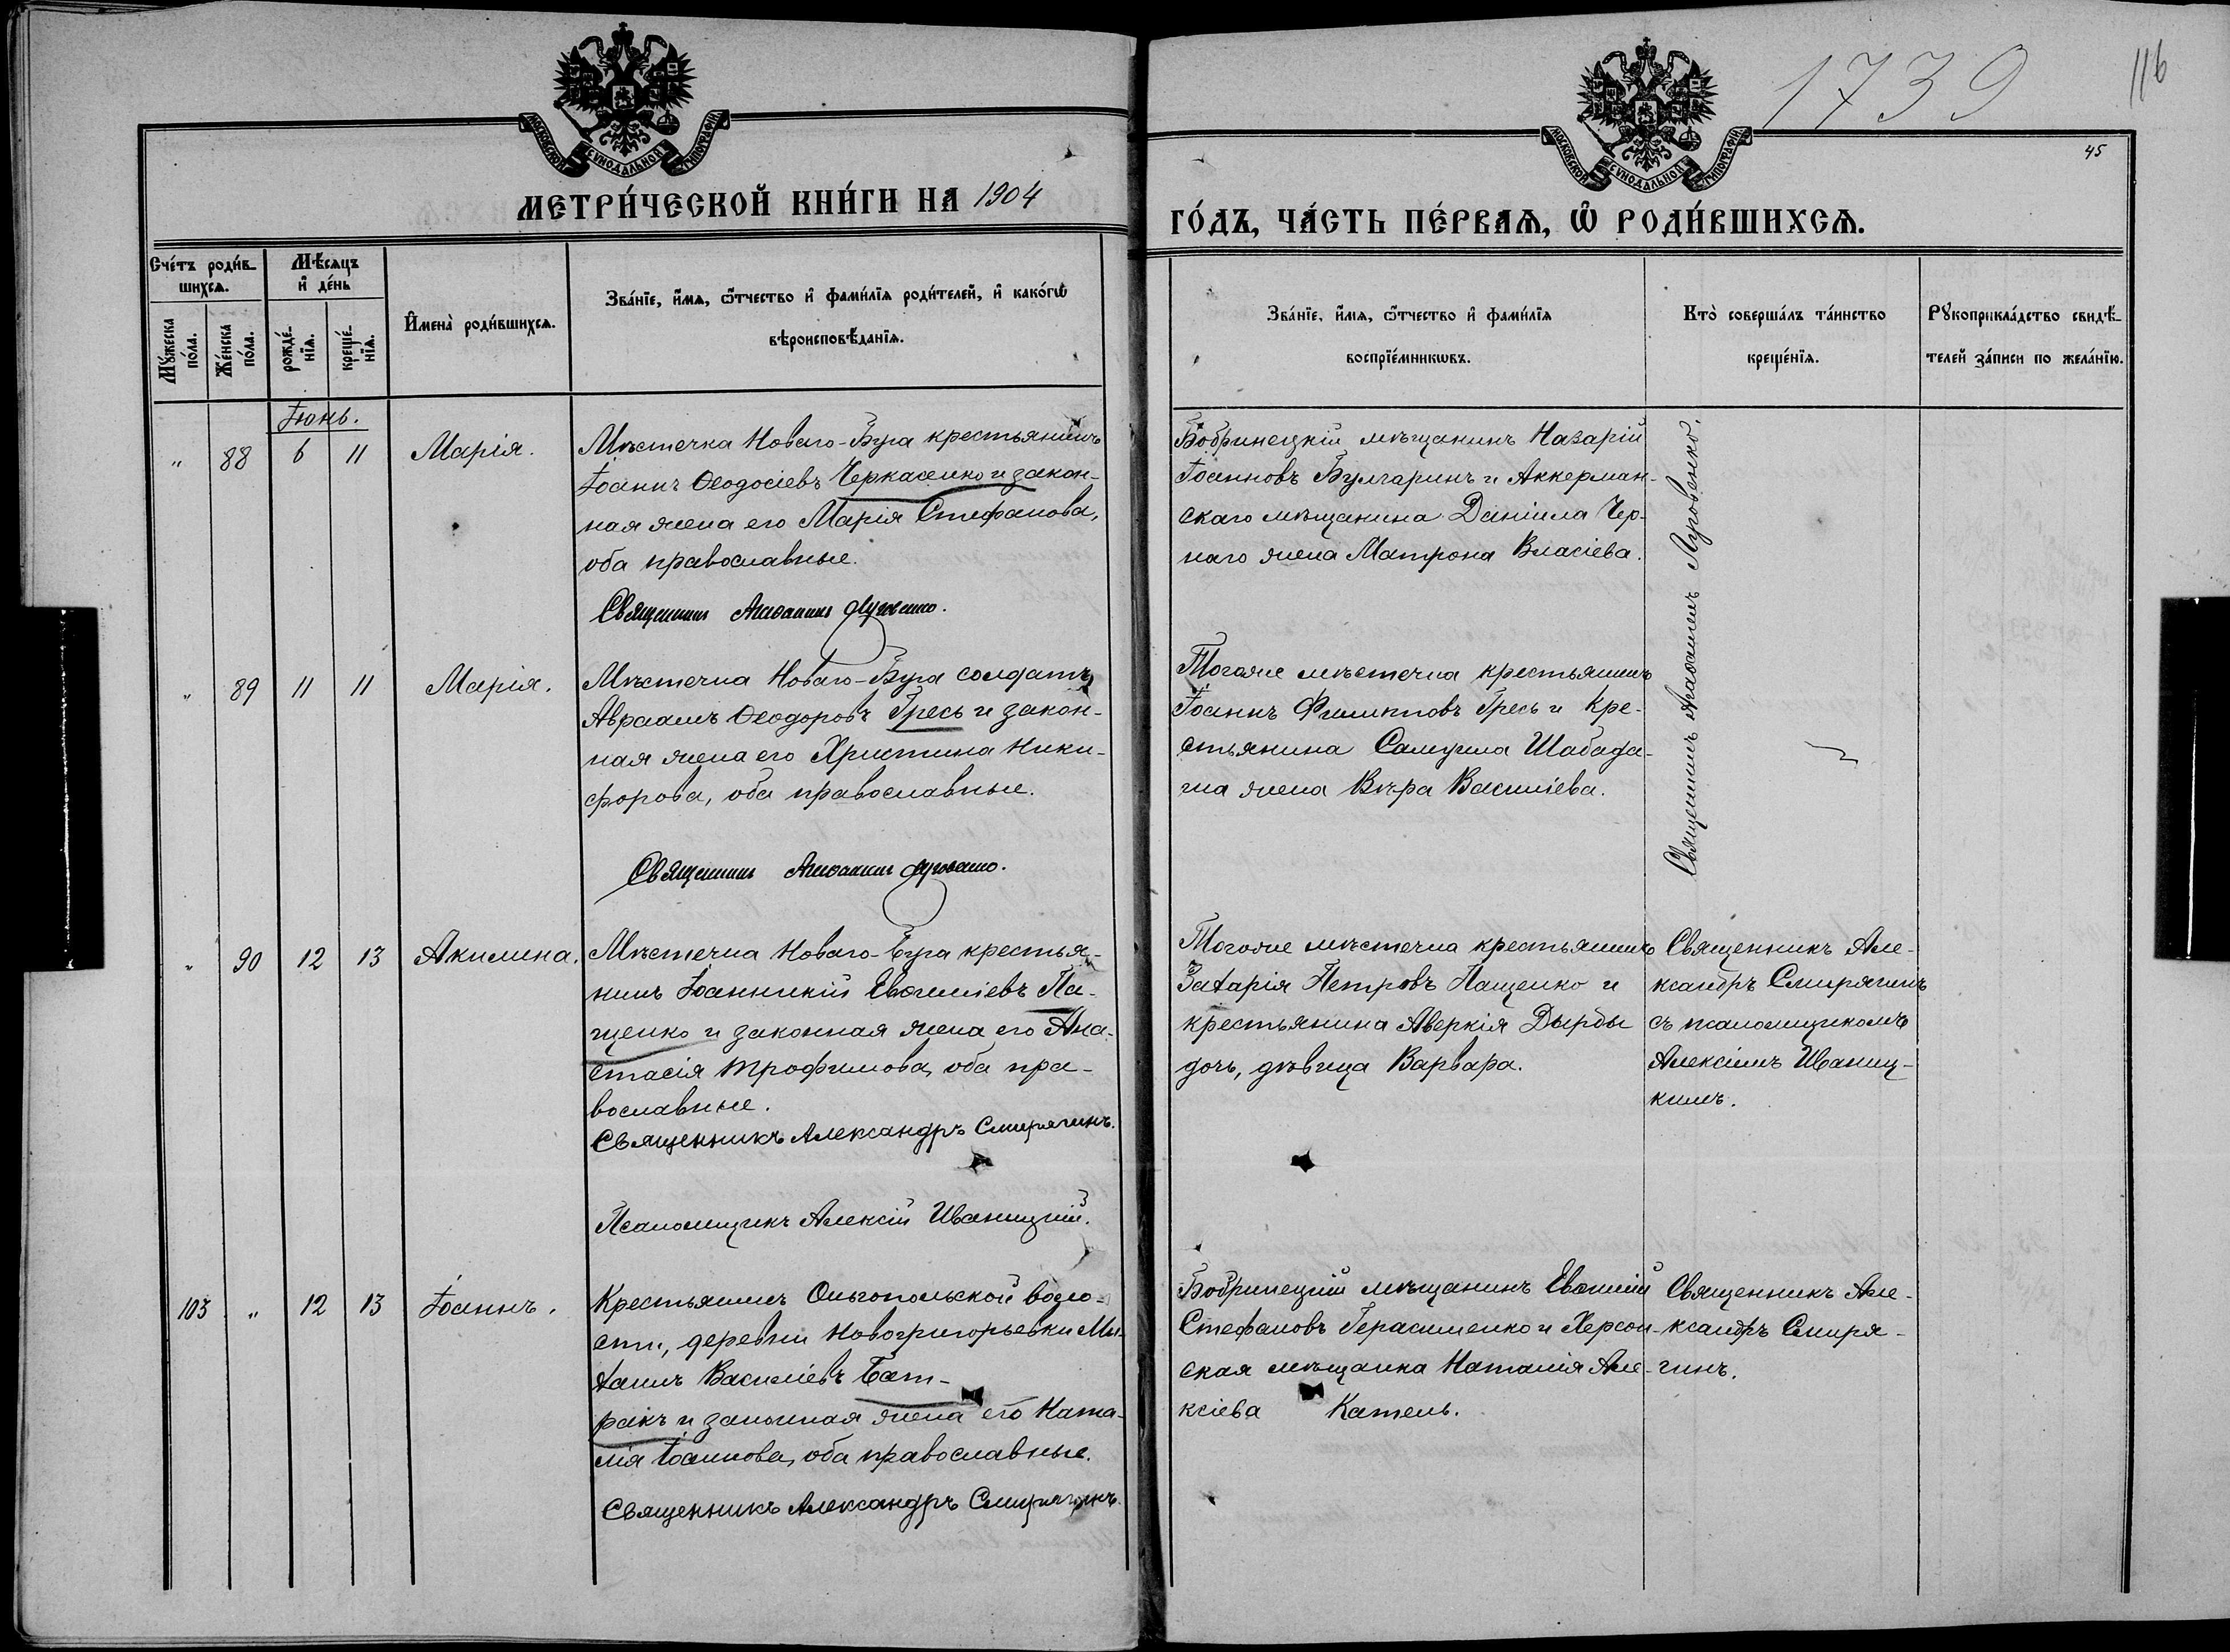 1739
116
45
МОСКОВСКОЙ СѴНОДАЛЬНОЙ ТИПОГРАФІИ
МОСКОВСКОЙ СѴНОДАЛЬНОЙ ТИПОГРАФІИ
МЕТРИ́ЧЕСКОЙ КНИ́ГИ НА 1904
ГО́ДЪ, ЧА́СТЬ ПЕ́РВАѦ, Ѽ РОДИ́ВШИХСѦ.
Сче́тъ роди́в-
шихсѧ.
Мꙋ́жеска
по́ла.
Же́нска
по́ла.
Мѣ́сѧцъ
и҆ де́нь
рожде́-
нїѧ.
креще́-
нїѧ.
И҆мена̀ роди́вшихсѧ.
Зва́нїе, и҆́мѧ, ѻ҆́тчество и҆ фами́лїѧ роди́телей, и҆ како́гѡ
вѣроисповѣ́данїѧ.
Зва́нїе, и҆́мѧ, ѻ҆́тчество и҆ фами́лїѧ
воспрїе́мникѡвъ.
Кто̀ соверша́лъ та́инство
креще́нїѧ.
Рꙋкоприкла́дство свидѣ́-
телей за́писи по жела́нїю.
Іюнь.
" 88 6 11 Марія.
Мѣстечка Новаго-Буга крестьянинъ
Іоаннъ Ѳеодосіевъ Черкасенко и закон-
ная жена его Марія Стефанова,
оба православные.
Священникъ
Бобринецкій мѣщанинъ Назарій
Іоанновъ Булгаринъ и Аккерман-
скаго мѣщанина Даніила Чер-
наго жена Матрона Власіева.
Священникъ
" 89 11 11 Марія.
Мѣстечка Новаго-Буга солдатъ
Авраамъ Ѳеодоровъ Гресь и закон-
ная жена его Христина Ники-
форова, оба православные.
Священникъ
Тогоже мѣстечка крестьянинъ
Іоаннъ Филипповъ Гресь и кре-
стьянина Самуила Шабада-
жена Вѣра Василіева.
" 90 12 13 Акилина.
Мѣстечка Новаго-Буга крестья-
нинъ Іоанникій Евѳиміевъ Па-
щенко и законная жена его Ана-
стасія Трофимова, оба пра-
вославные.
Священникъ Александръ Смирягинъ.
Псаломщикъ Алексій Иваницкій.
Тогоже мѣстечка крестьянинъ
Захарія Петровъ Пащенко и
крестьянина Аверкія Дырды
дочь, дѣвица Варвара.
Священникъ Але-
ксандръ Смирягинъ
съ псаломщикомъ
Алексіемъ Иваниц-
кимъ.
103 " 12 13 Іоаннъ.
Крестьянинъ Ольгопольской воло-
сти, деревни Новогригорьевки Ми-
хаилъ Василіевъ Бат-
ракъ и законная жена его Ната-
лія Іоаннова, оба православные.
Священникъ Александръ Смирягинъ.
Бобринецкій мѣщанинъ Евѳимій
Стефановъ Герасименко и Херсон-
ская мѣщанка Наталія Але-
ксіева Катель.
Священникъ Але-
ксандръ Смиря-
гинъ.